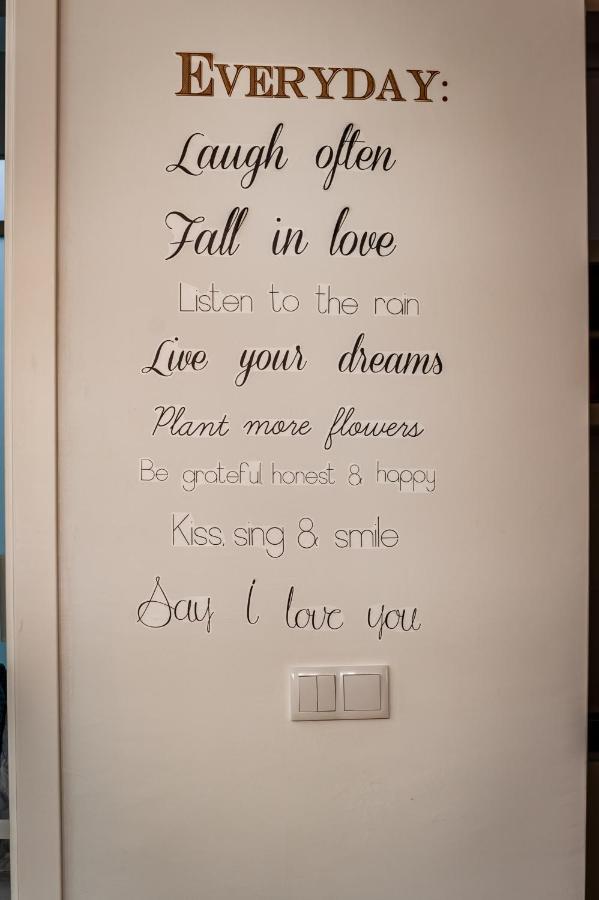 EVERYDAY:
Laugh often
Fall in love
Listen to the rain
Live your dreams
Plant more flowers
Be grateful honest & happy
Kiss, sing & smile
Say I love you